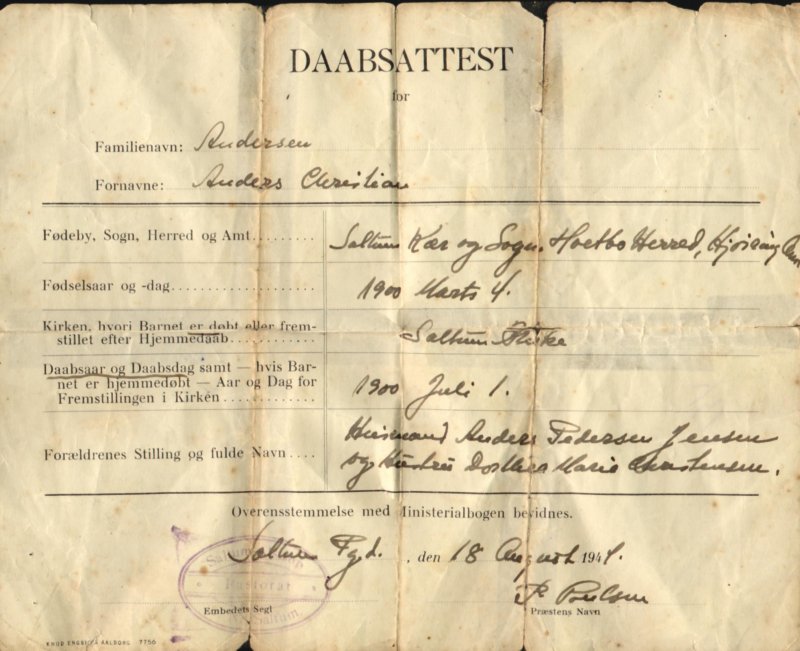 DAABSATTEST
for
Familienavn: Andersen
Fornavne: Anders Christian
Fødeby, Sogn, Herred og Amt......... Saltum Kær og Sogn. Hvetbo Herred, Hjørring
Fødselsaar og -dag.................... 1900 Marts 4.
Kirken, hvori Barnet er døbt eller frem-
stillet efter Hjemmedaab............ Saltum Kirke
Daabsaar og Daabsdag samt — hvis Bar-
net er hjemmedøbt — Aar og Dag for
Fremstillingen i Kirken............. 1900 Juli 1.
Forældrenes Stilling og fulde Navn.... Husmand Anders Pedersen Jensen
og Hustru Dorthea Marie Christensen.
Overensstemmelse med Ministerialbogen bevidnes.
Saltum Pgd., den 18 August 1941.
Pastorat
Saltum
P. Poulsen
Embedets Segl
Præstens Navn
KNUD ENGSIG AALBORG 7756